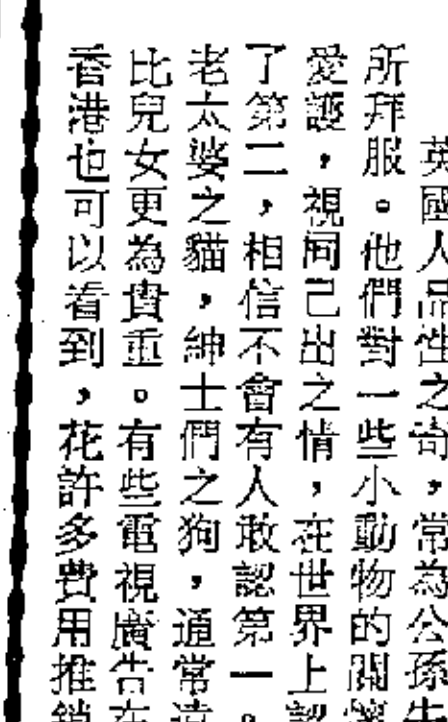 英國人品性之奇，常為公孫
所拜服。他們對一些小動物的關
愛護，視同己出之情，在世界上認
了第二，相信不會有人敢認第一。
老太婆之貓，紳士們之狗，通常
比兒女更為貴重。有些電視廣告在
香港也可以看到，花許多費用推銷